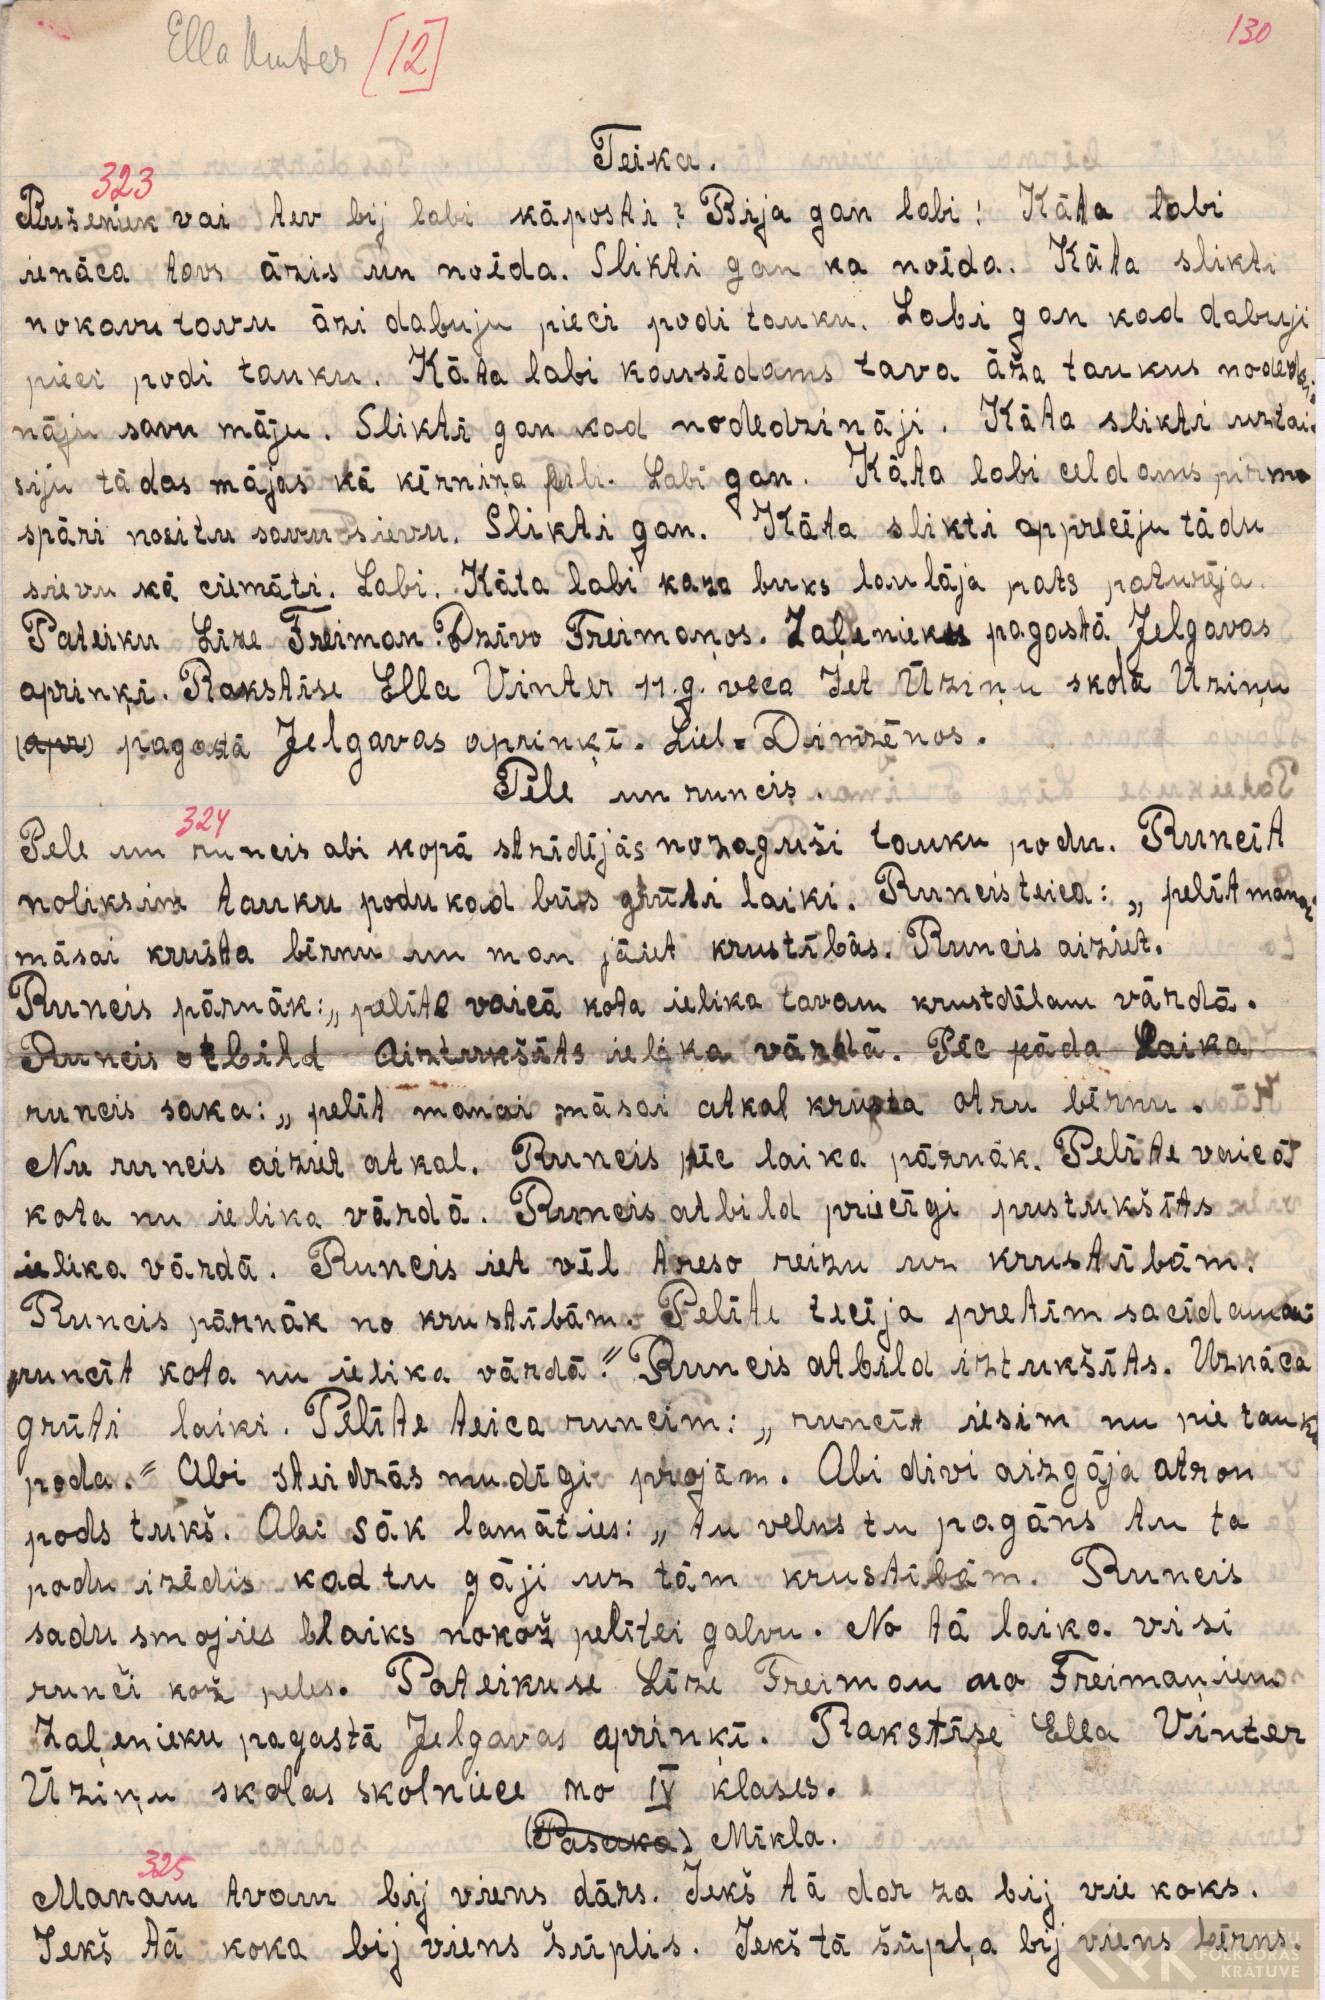 Ella Vinter [12]
130
Teika.
323
Bušeniek vai tev bij labi kāposti? Bija gan labi! Kāta labi
ienāca tavs āzis un noēda. Slikti gan ka noēda. Kāta slikti
nokavu tavu āzi dabuju pieci podi tauku. Labi gan kad dabuji
pieci podi tauku. Kāta labi kausēdams tava āža taukus nodedzi-
nāju savu māju. Slikti gan kad nodedzināji. Kāta slikti uztai-
siju tādas mājas kā ķērniņa pili. Labi gan. Kāta labi celdams pirmo
spāri nositu savu sievu. Slikti gan. Kāta slikti apprecēju tādu
sievu kā ciemāti. Labi. Kāta labi kaza buks laulāja pats paturēja.
Pateiku Līze Freiman. Dzīvo Freimaņos. Zaļenieku pagastā Jelgavas
apriņķī. Rakstīse Ella Vinter 11.g. veca Iet Ūziņu skolā Ūziņu
(apr) pagastā Jelgavas apriņķī. Liel-Dimzēnos.
Pele un runcis.
324
Pele un runcis abi kopā strīdējās nozaguši tauku podu. Runcīt
noliksim tauku podu kad būs grūti laiki. Runcis teica: „pelīt manai
māsai krusta bērnu un man jāiet krustībās. Runcis aiziet.
Runcis pārnāk: „pelīte vaicā kota ielika tavam krustdēlam vārdā.
Runcis otbild aiztukšīts ielika vārdā. Pēc kāda laika
runcis saka: „pelīt manai māsai atkal krusta otru bērnu.
Nu runcis aiziet atkal. Runcis pēc laika pārnāk. Pelīte vaicā
kota nu ielika vārdā. Runcis atbild priecīgi pustukšīts
ielika vārdā. Runcis iet vēl treso reizu uz krustībām.
Runcis pārnāk no krustībām. Pelīte tecēja pretim sacīdama
runcīt kota nu ielika vārdā." Runcis atbild iztukšīts. Uznāca
grūti laiki. Pelīte teica runcim: „runcīt iesim nu pie tauku
poda." Abi steidzās mudīgi projām. Abi divi aizgāja atron
pods tukš. Abi sāk lamāties: „tu velns tu pagāns tu ta
podu izēdis kad tu gāji uz tām krustībām. Runcis
sadusmojies blaiks nokož pelītei galvu. No tā laika visi
runči kož peles. Pateikuse Līze Freiman no Freimaņiem
Zaļenieku pagastā Jelgavas apriņķī. Rakstīse Ella Vinter
Ūziņu skolas skolniece no IV klases.
(Pasaka) Mīkla.
325
Manam tvam bij viens dārs. Iekš tā darza bij vie koks.
Iekš tā koka bij viens šūplis. Iekš tā šūpļa bij viens bērns.
FOLKLORAS
KRĀTUVE